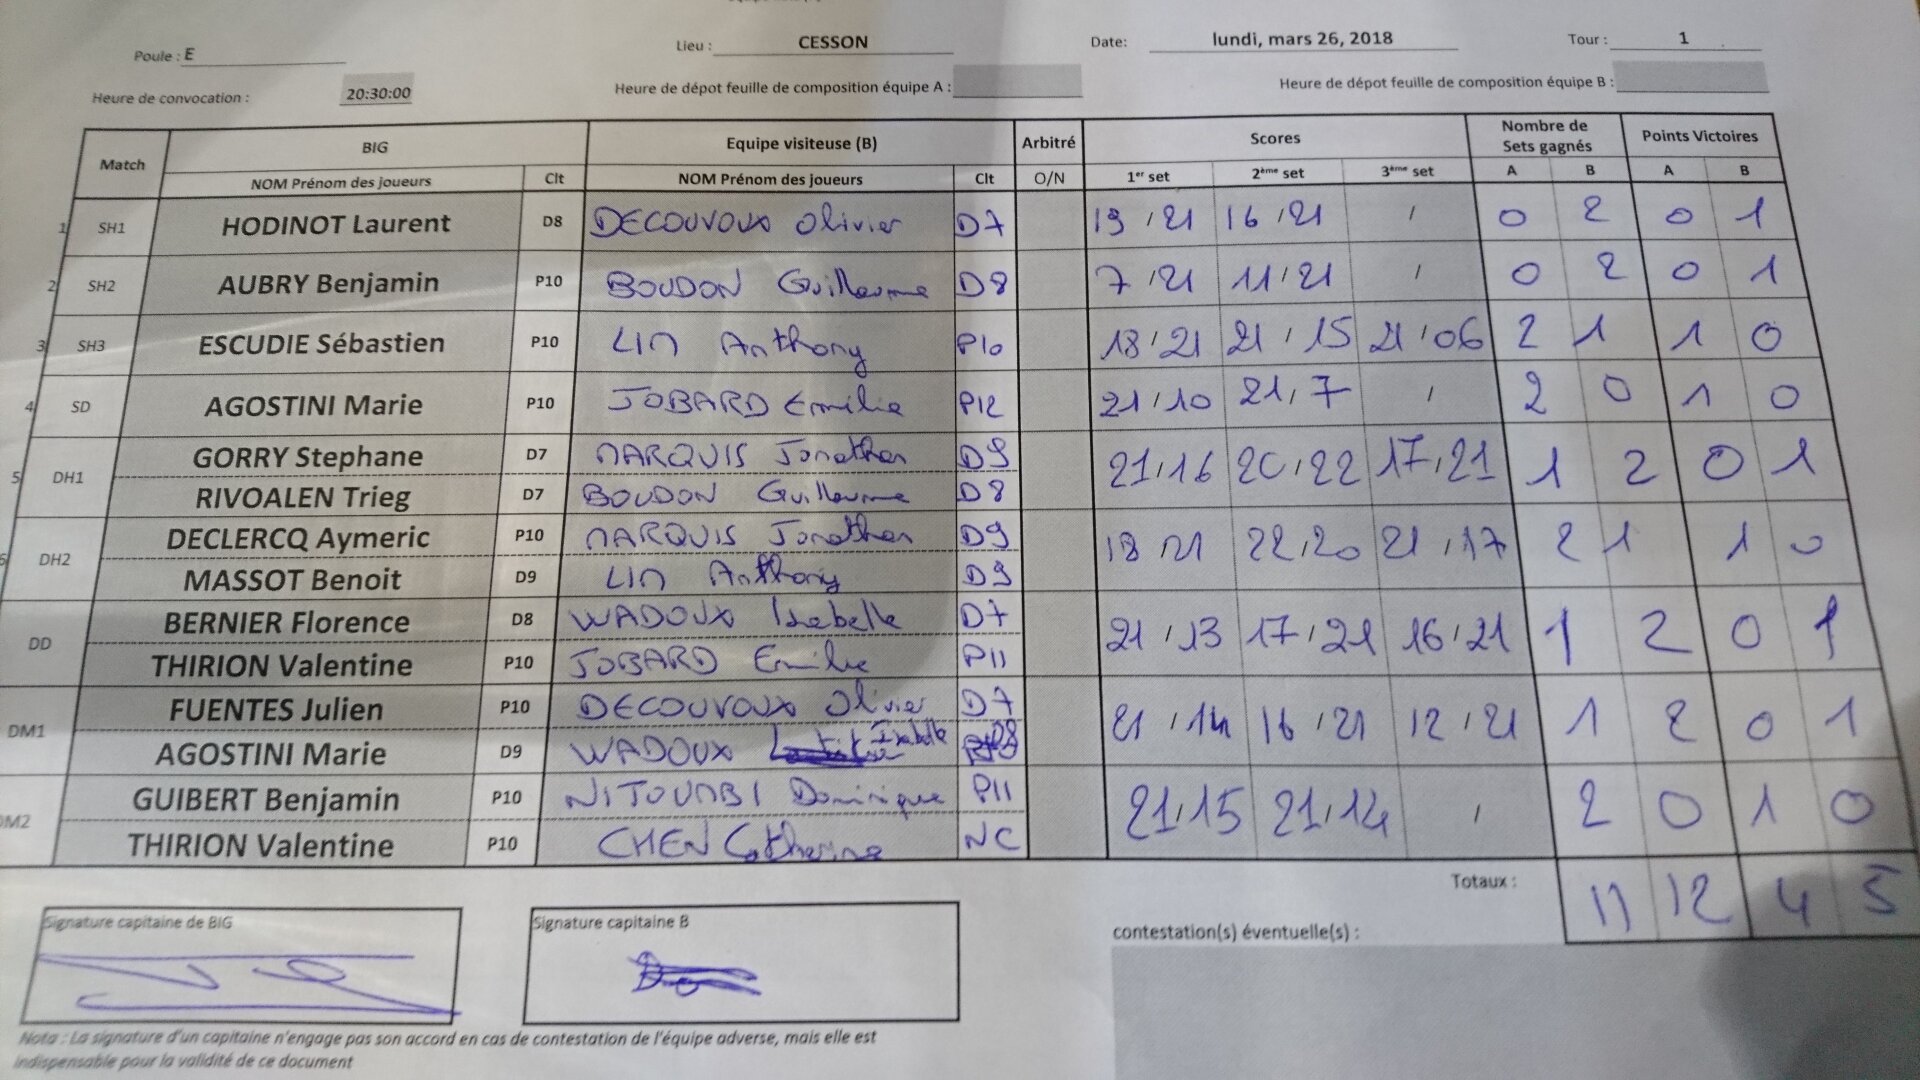 Poule : E Lieu : CESSON Date: lundi, mars 26, 2018 Tour : 1
Heure de convocation : 20:30:00 Heure de dépot feuille de composition équipe A : Heure de dépot feuille de composition équipe B :
Match BIG Equipe visiteuse (B) Arbitré Scores Nombre de Sets gagnés Points Victoires
NOM Prénom des joueurs Clt NOM Prénom des joueurs Clt O/N 1er set 2ème set 3ème set A B A B
1 SH1 HODINOT Laurent D8 DECOUVOUX Olivier D7 19 / 21 16 / 21 / 0 2 0 1
2 SH2 AUBRY Benjamin P10 BOUDON Guillaume D8 7 / 21 11 / 21 / 0 2 0 1
3 SH3 ESCUDIE Sébastien P10 LIM Anthony P10 18 / 21 21 / 15 21 / 06 2 1 1 0
4 SD AGOSTINI Marie P10 JOBARD Emilie P12 21 / 10 21 / 7 / 2 0 1 0
5 DH1 GORRY Stephane D7 MARQUIS Jonathan D9 21 / 16 20 / 22 17 / 21 1 2 0 1
RIVOALEN Trieg D7 BOUDON Guillaume D8
6 DH2 DECLERCQ Aymeric P10 MARQUIS Jonathan D9 18 21 22 / 20 21 / 17 2 1 1 0
MASSOT Benoit D9 LIM Anthony D9
DD BERNIER Florence D8 WADOUX Isabelle D7 21 / 13 17 / 21 16 / 21 1 2 0 1
THIRION Valentine P10 JOBARD Emilie P11
DM1 FUENTES Julien P10 DECOUVOUX Olivier D7 21 / 14 16 / 21 12 / 21 1 2 0 1
AGOSTINI Marie D9 WADOUX Isabelle D8
DM2 GUIBERT Benjamin P10 NITOUMBI Dominique P11 21 / 15 21 / 14 / 2 0 1 0
THIRION Valentine P10 CHEN Catherine NC
Totaux : 11 12 4 5
Signature capitaine de BIG Signature capitaine B contestation(s) éventuelle(s) :
Nota : La signature d'un capitaine n'engage pas son accord en cas de contestation de l'équipe adverse, mais elle est
indispensable pour la validité de ce document